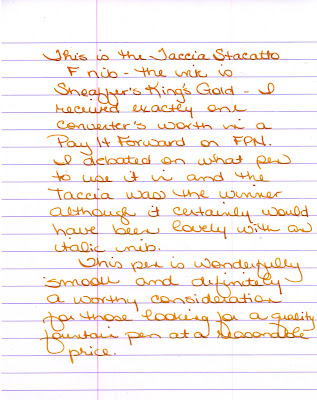 This is the Taccia Stacatto
F nib - the ink is
Sheaffer's King's Gold - I
received exactly one
converter's worth in a
Pay It Forward on FPN.
I debated on what pen
to use it in and the
Taccia was the winner
although it certainly would
have been lovely with an
italic nib.
This pen is wonderfully
smooth and definitely
a worthy consideration
for those looking for a quality
fountain pen at a reasonable
price.